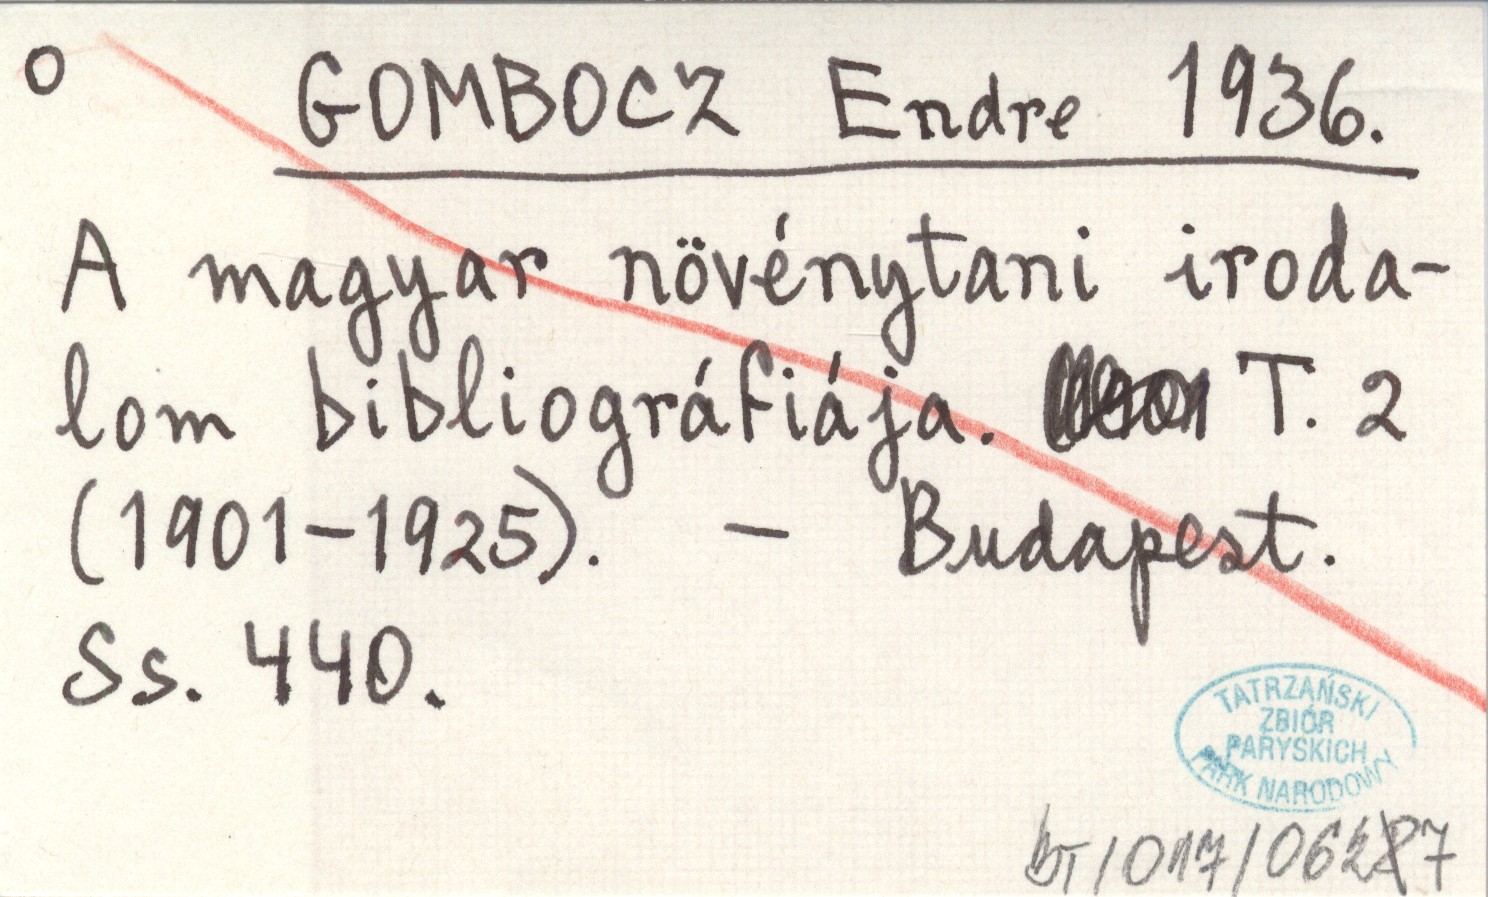 O GOMBOCZ Endre 1936.
A magyar növénytani iroda-
lom bibliográfiája. T. 2
(1901-1925). – Budapest.
Ss. 440.
TATRZAŃSKI
ZBIÓR
PARYSKICH
PARK NARODOWY
bT/017/06287